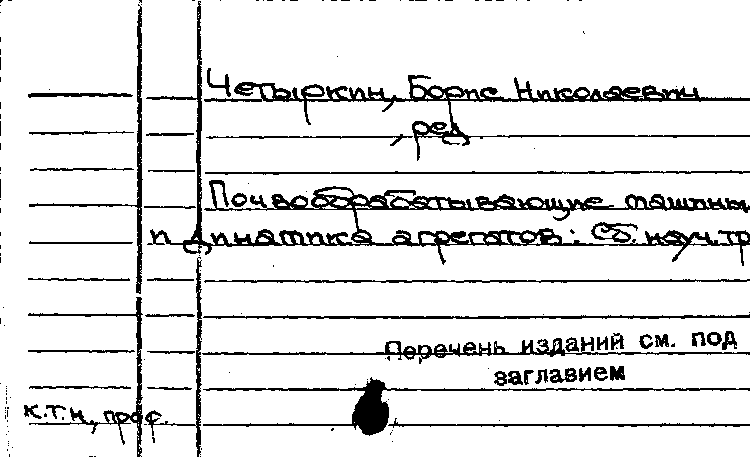 Четыркин, Борис Николаевич
, ред.
Почвообрабатывающие машины
и динамика агрегатов: Сб. науч. тр
Перечень изданий см. под
заглавием
к.т.н., проф.